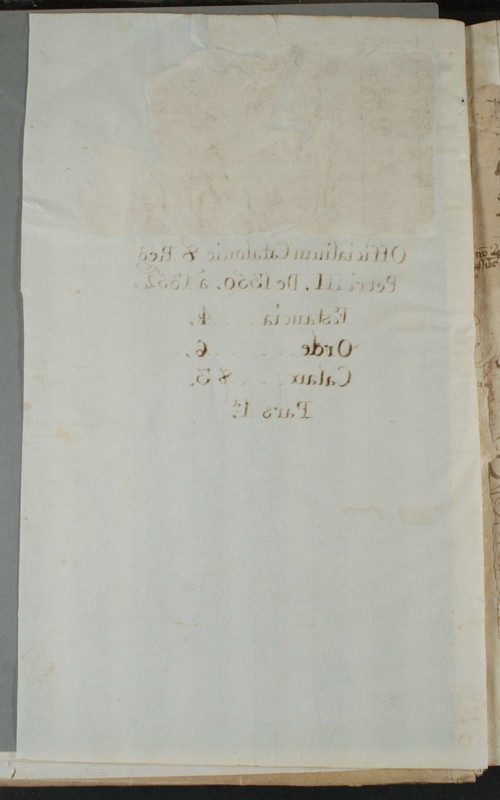 Officialium Catalonie & Reg
Petri III. De 1380. à 1382.
Estancia ... 4.
Orde ... 6.
Calaix ... 83.
Pars 1ª.